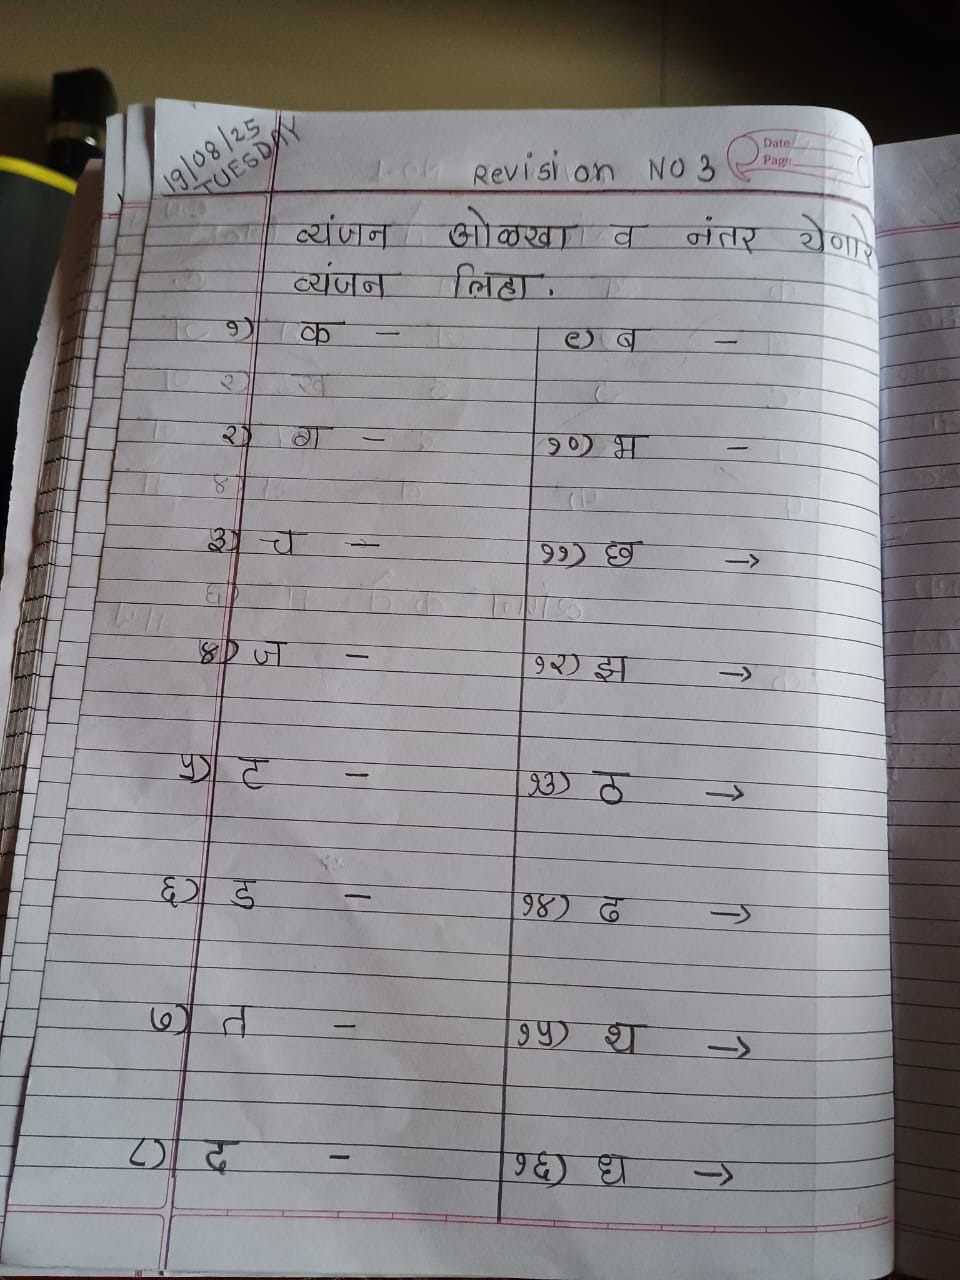 19/08/25
TUESDAY
Revision NO 3
Date
Page
व्यंजन ओळखा व नंतर येणारे
व्यंजन लिहा.
१) क -
२) ग -
३) च -
४) ज -
५) ट -
६) ड -
७) त -
८) द -
९) ब -
१०) भ -
११) छ →
१२) झ →
१३) ठ →
१४) ढ →
१५) थ →
१६) ध →